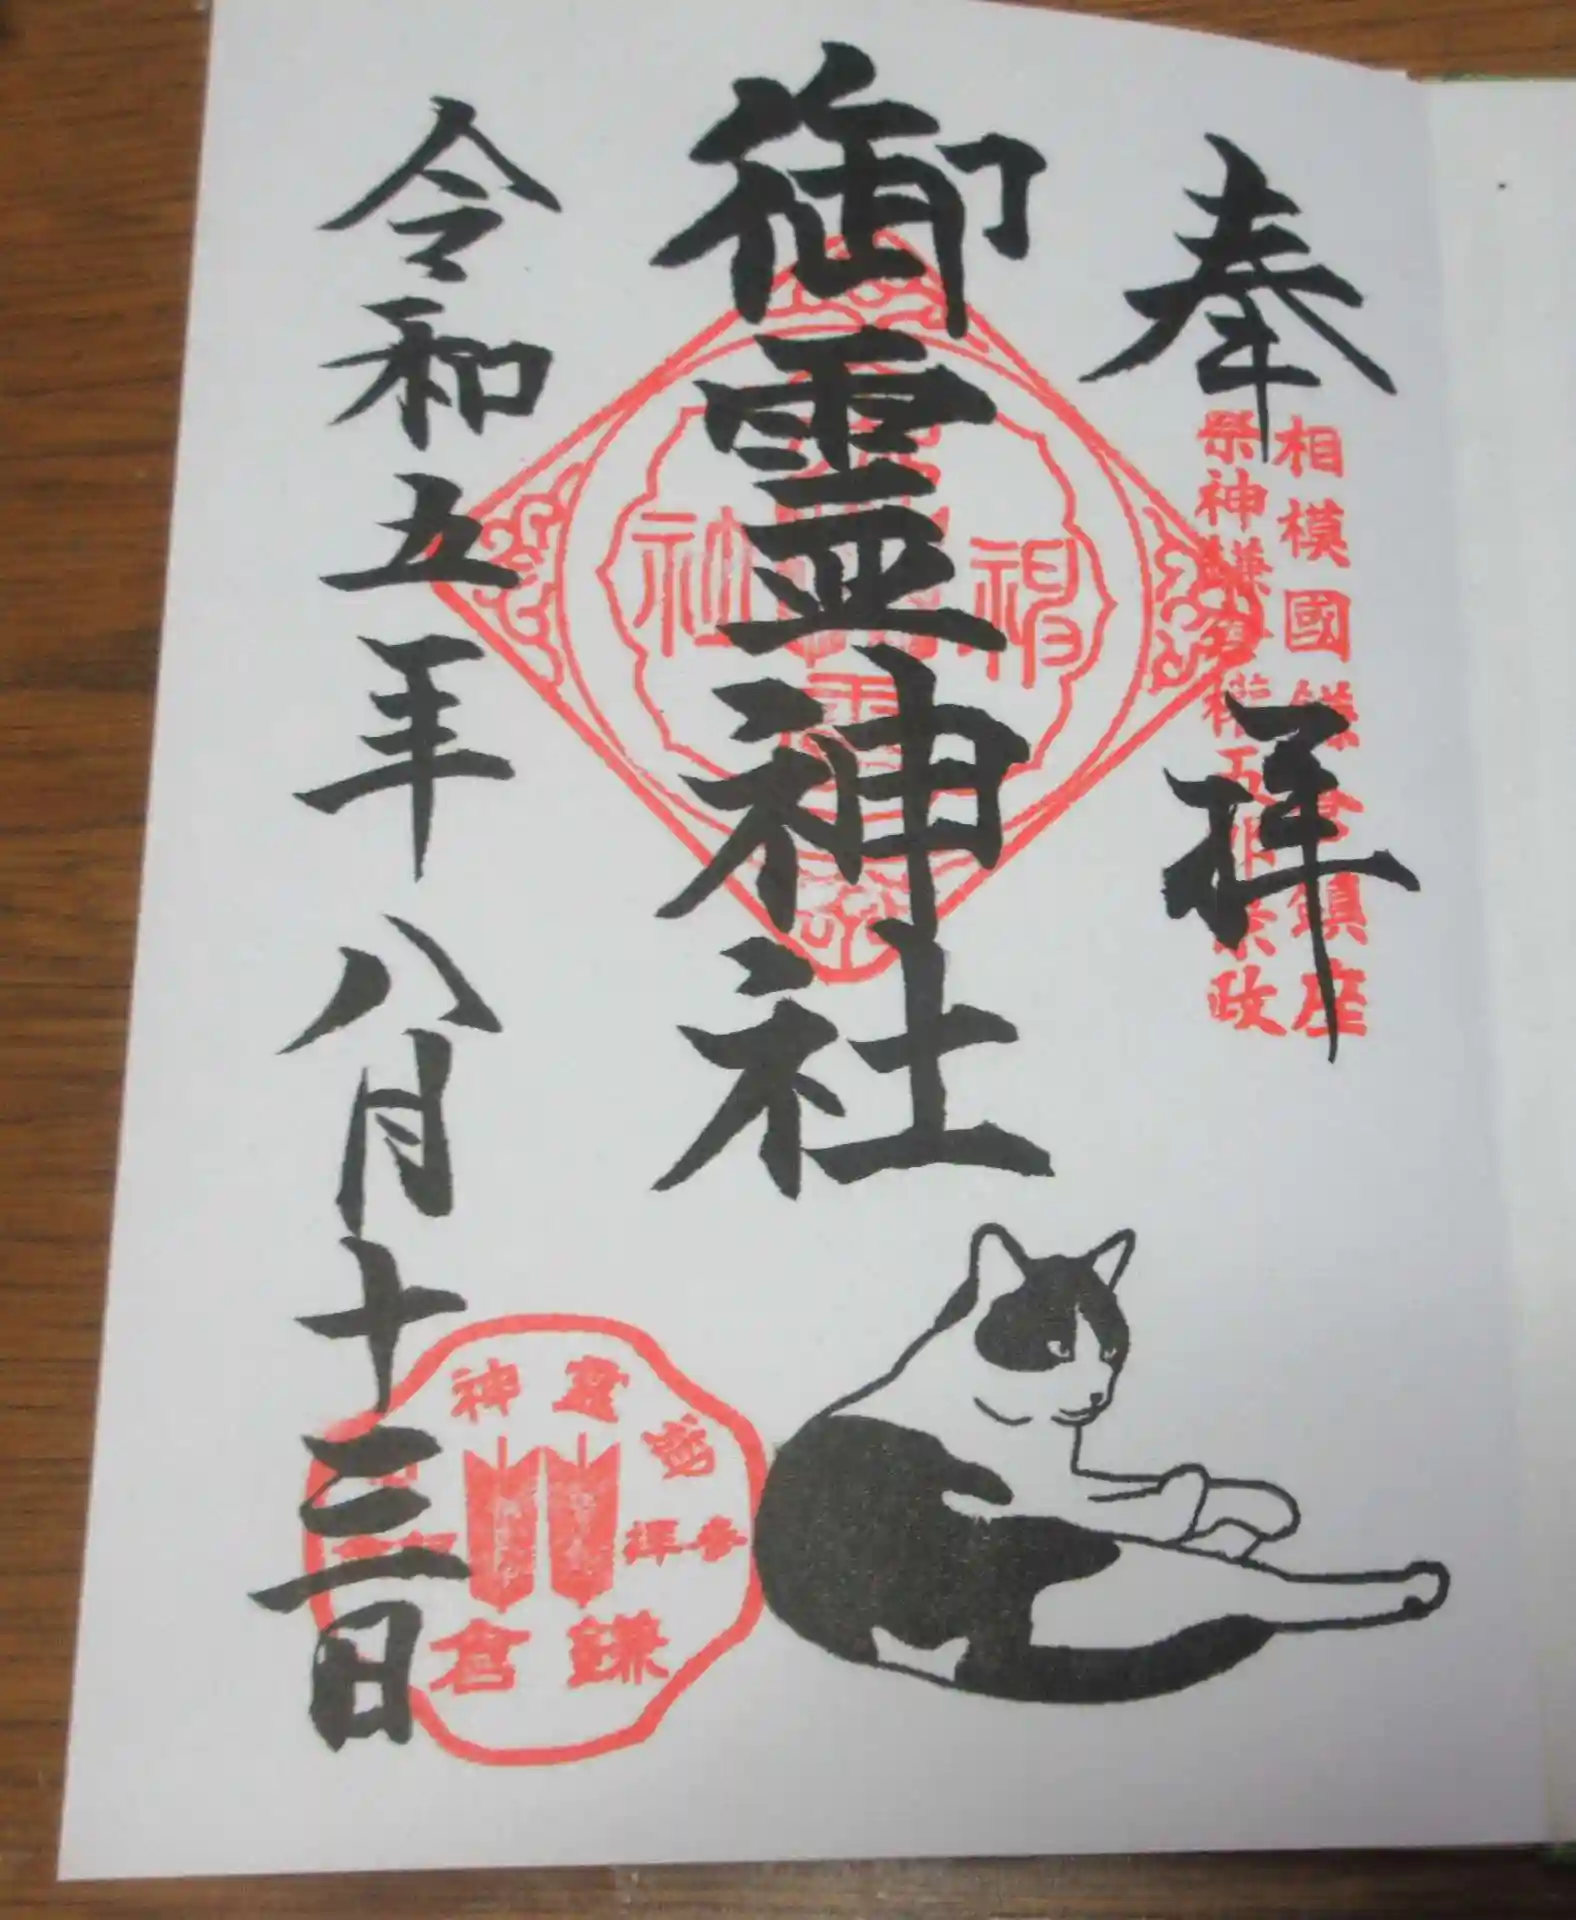 奉拝
相模國鎌倉鎮座
祭神鎌倉権五郎景政
御霊神社
令和五年八月十三日
御靈神社
鎌倉